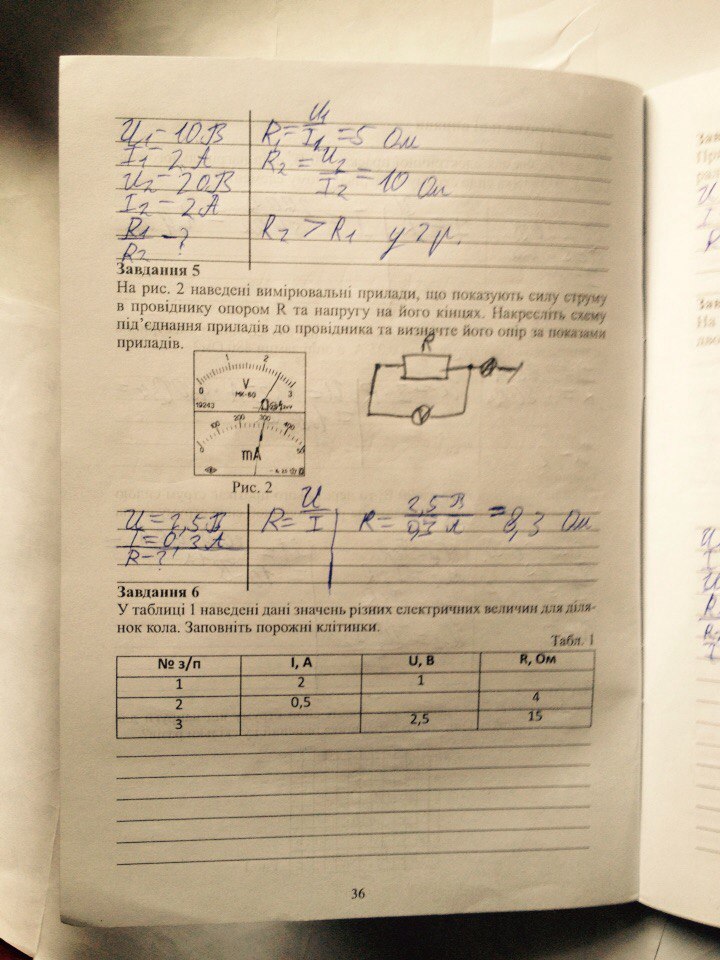 U1 = 10 В R1 = U1/I1 = 5 Ом
I1 = 2 А R2 = U2/I2 = 10 Ом
U2 = 20 В
I2 = 2 А R2 > R1 у 2 р.
R1/R2 - ?
Завдання 5
На рис. 2 наведені вимірювальні прилади, що показують силу струму
в провіднику опором R та напругу на його кінцях. Накресліть схему
під'єднання приладів до провідника та визначте його опір за показами
приладів.
R
A
V
0 1 2 3
V
МК-60
19243
0 100 200 300 400
mA
Рис. 2
U = 2,5 В R = U/I R = 2,5 В/0,3 А = 8,3 Ом
I = 0,3 А
R - ?
Завдання 6
У таблиці 1 наведені дані значень різних електричних величин для діля-
нок кола. Заповніть порожні клітинки.
Табл. 1
№ з/п I, А U, В R, Ом
1 2 1
2 0,5 4
3 2,5 15
36